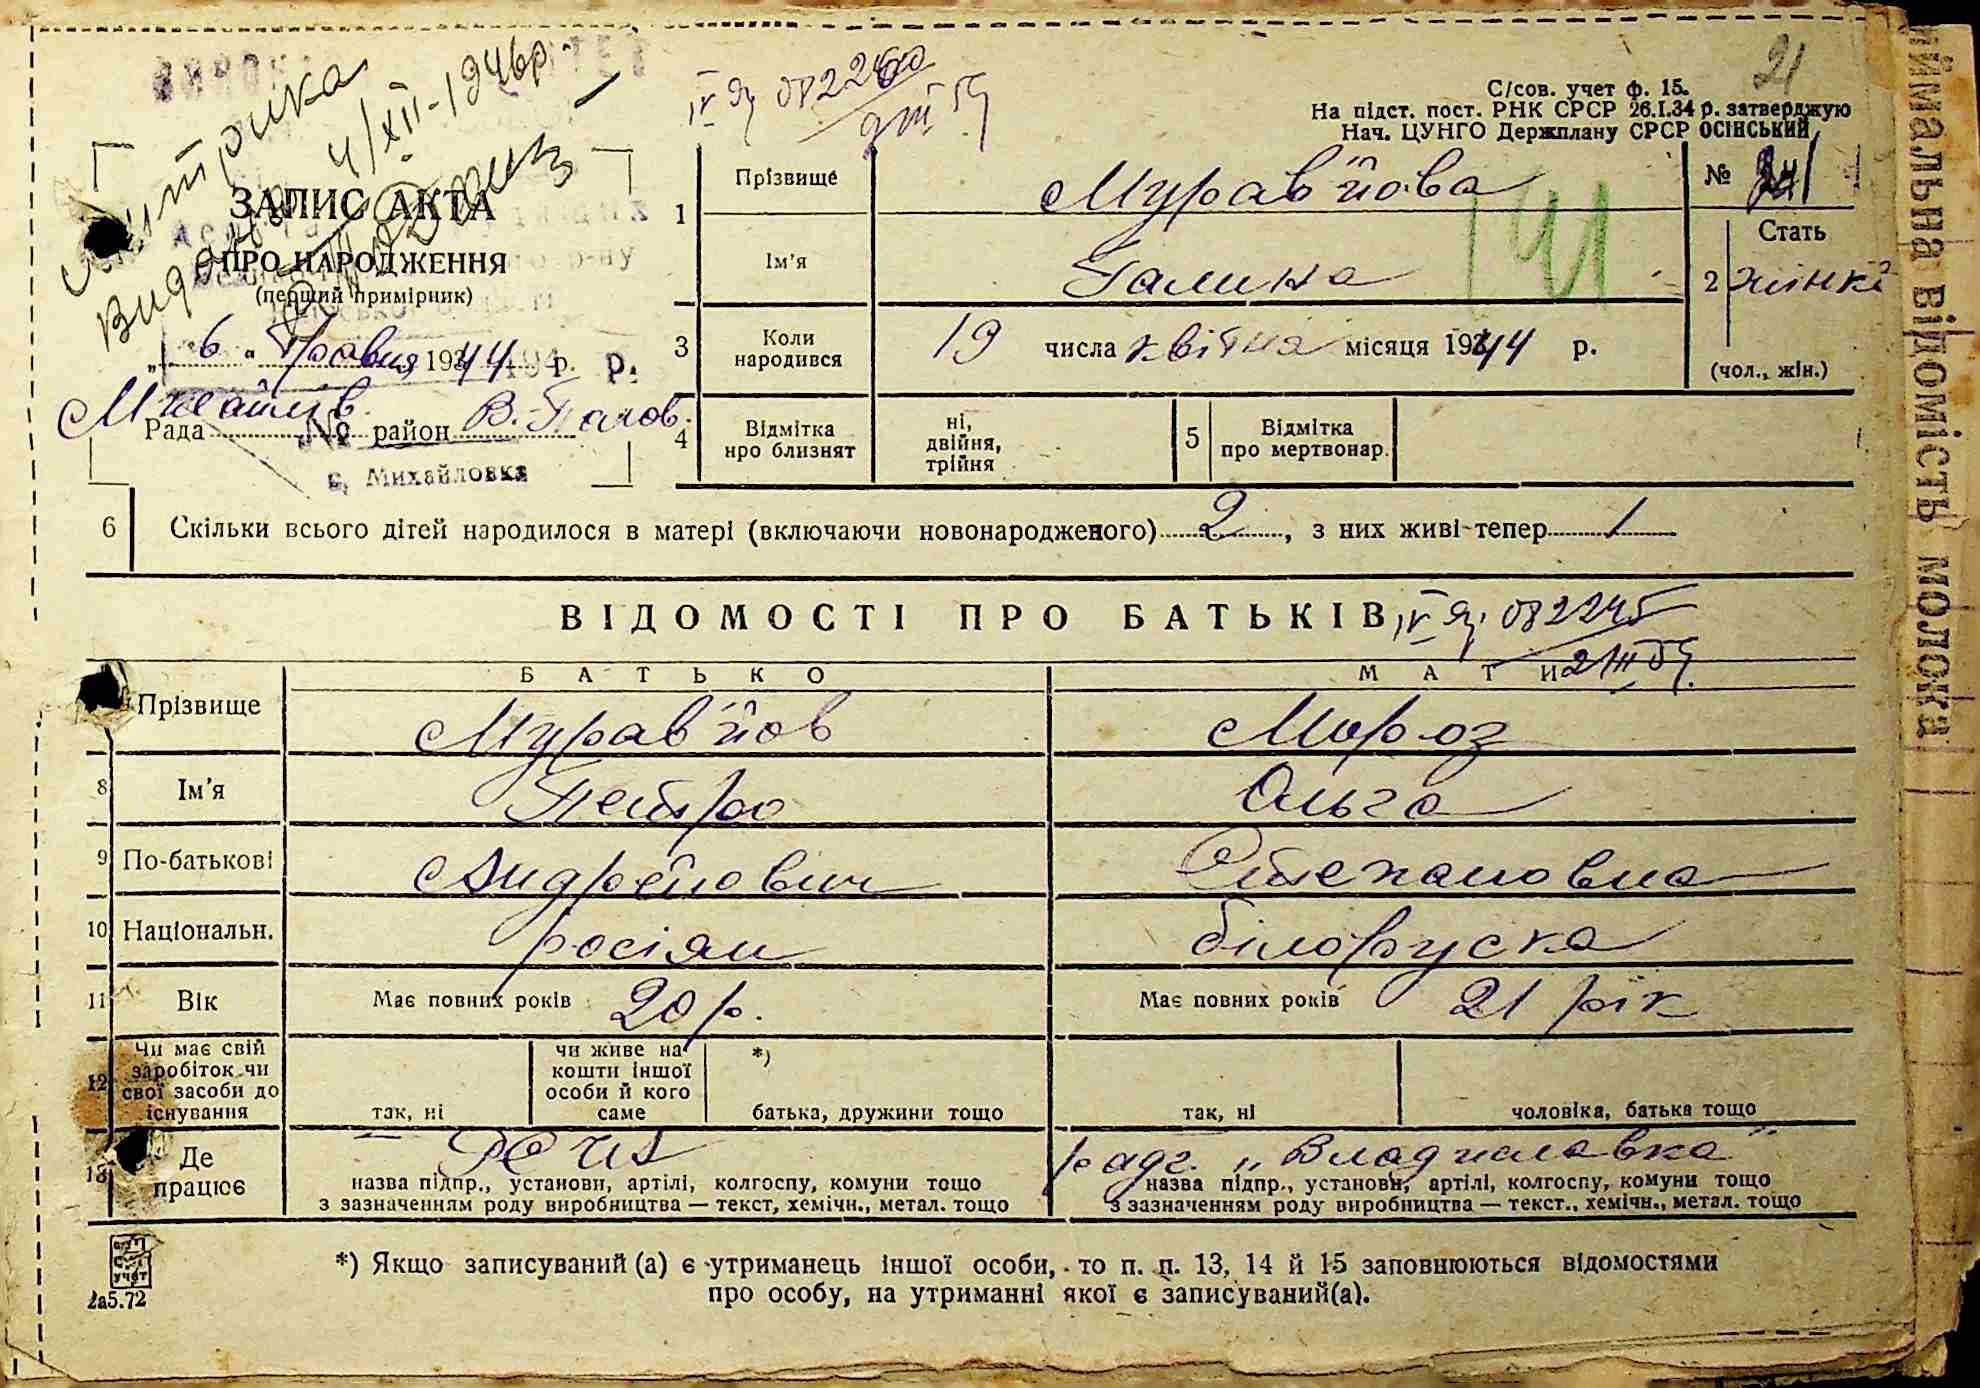 Видана 4/XII-1946р.
IV Яц 082246
2III 54
21
С/сов. учет ф. 15.
На підст. пост. РНК СРСР 26.I.34 р. затверджую
Нач. ЦУНГО Держплану СРСР ОСІНСЬКИЙ
ЗАПИС АКТА
ПРО НАРОДЖЕННЯ
(перший примірник)
„ 6 “ Травня 1944 р.
Михайлів. Рада район В.-Палов.
с. Михайловка
1 Прізвище Мурав'йова
Ім'я Галина
№ 21
41
2 Стать жінка
(чол., жін.)
3 Коли народився 19 числа квітня місяця 1944 р.
4 Відмітка про близнят ні, двійня, трійня
5 Відмітка про мертвонар.
6 Скільки всього дітей народилося в матері (включаючи новонародженого) 2, з них живі тепер 1
ВІДОМОСТІ ПРО БАТЬКІВ IV Яц 082245
2III 54
БАТЬКО МАТИ
Прізвище Мурав'йов Мороз
8 Ім'я Петро Ольга
9 По-батькові Андрейович Степановна
10 Національн. росіян білоруска
11 Вік Має повних років 20 р. Має повних років 21 рік
12 Чи має свій заробіток чи свої засоби до існування так, ні чи живе на кошти іншої особи й кого саме *) батька, дружини тощо так, ні чоловіка, батька тощо
13 Де працює – РСЧА радг. „Владиславка"
назва підпр., установи, артілі, колгоспу, комуни тощо назва підпр., установи, артілі, колгоспу, комуни тощо
з зазначенням роду виробництва — текст, хемічн., метал. тощо з зазначенням роду виробництва — текст., хемічн., метал. тощо
*) Якщо записуваний (а) є утриманець іншої особи, то п. п. 13, 14 й 15 заповнюються відомостями
про особу, на утриманні якої є записуваний(а).
2а5.72
мальна відомість молока